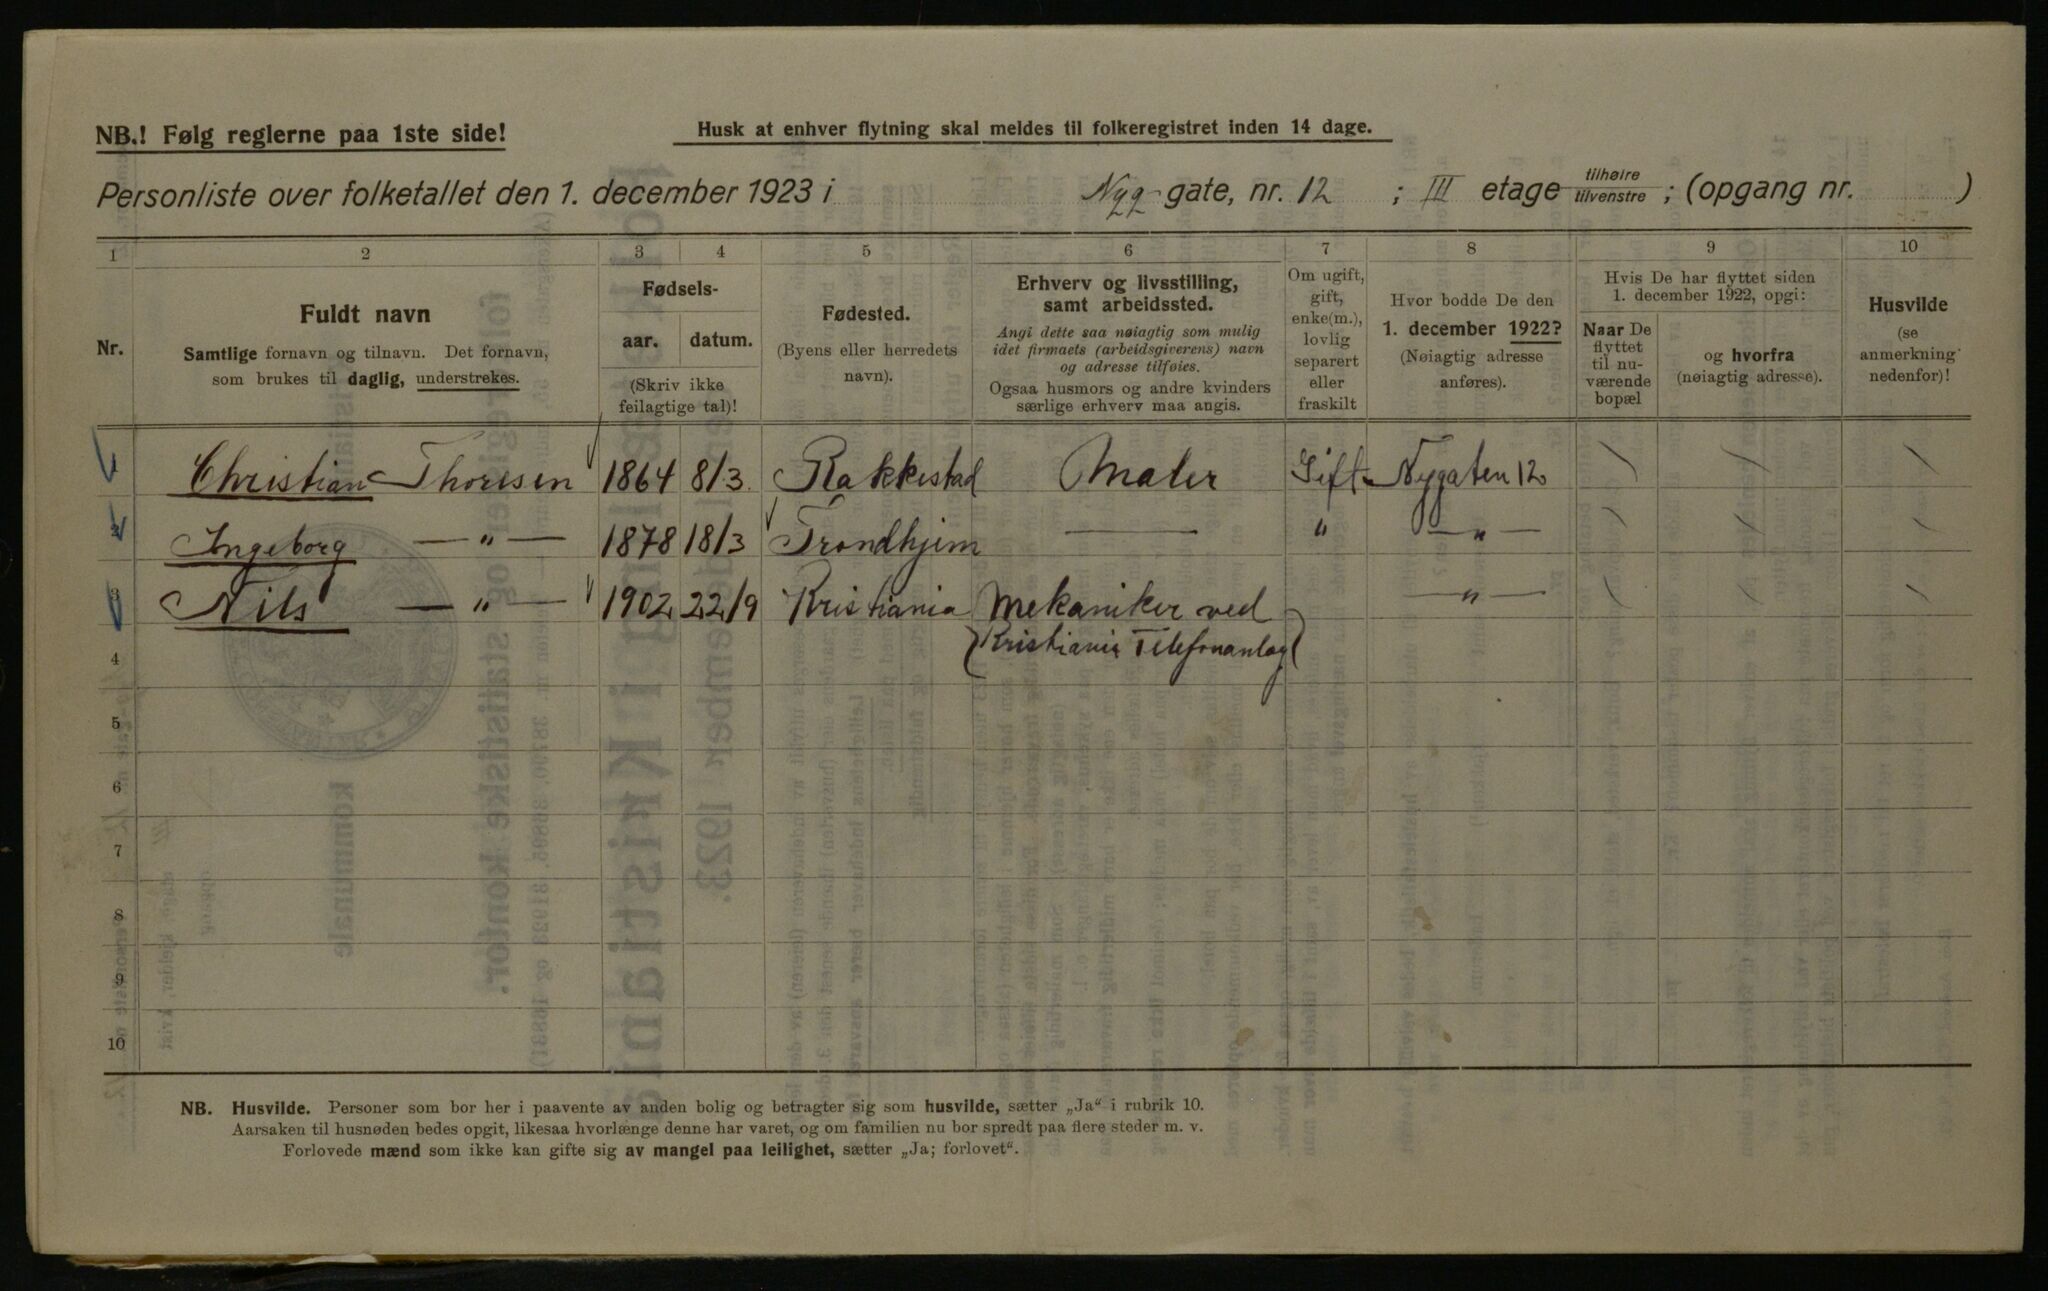 NB.! Følg reglerne paa 1ste side!
Husk at enhver flytning skal meldes til folkeregistret inden 14 dage.
Personliste over folketallet den 1. december 1923 i Nygate, nr. 12 ; III etage tilhøire tilvenstre ; (opgang nr. )
1 2 3 4 5 6 7 8 9 10
Nr.
Fuldt navn
Samtlige fornavn og tilnavn. Det fornavn,
som brukes til daglig, understrekes.
Fødsels-
aar. datum.
(Skriv ikke
feilagtige tal)!
Fødested.
(Byens eller herredets
navn).
Erhverv og livsstilling,
samt arbeidssted.
Angi dette saa nøiagtig som mulig
idet firmaets (arbeidsgiverens) navn
og adresse tilføies.
Ogsaa husmors og andre kvinders
særlige erhverv maa angis.
Om ugift,
gift,
enke(m.),
lovlig
separert
eller
fraskilt
Hvor bodde De den
1. december 1922?
(Nøiagtig adresse
anføres).
Hvis De har flyttet siden
1. december 1922, opgi:
Naar De
flyttet
til nu-
værende
bopæl
og hvorfra
(nøiagtig adresse).
Husvilde
(se
anmerkning
nedenfor)!
1 Christian Thoresen 1864 8/3 Rakkestad Maler Gift Nygaten 12 / / /
2 Ingeborg — „ — 1878 18/3 Trondhjem — „ — „ — / / /
3 Nils — „ — 1902 22/9 Kristiania Mekaniker ved — „ — / / /
4 (Kristiania Telefonanlæg)
5
6
7
8
9
10
NB. Husvilde. Personer som bor her i paavente av anden bolig og betragter sig som husvilde, sætter „Ja“ i rubrik 10.
Aarsaken til husnøden bedes opgit, likesaa hvorlænge denne har varet, og om familien nu bor spredt paa flere steder m. v.
Forlovede mænd som ikke kan gifte sig av mangel paa leilighet, sætter „Ja; forlovet“.